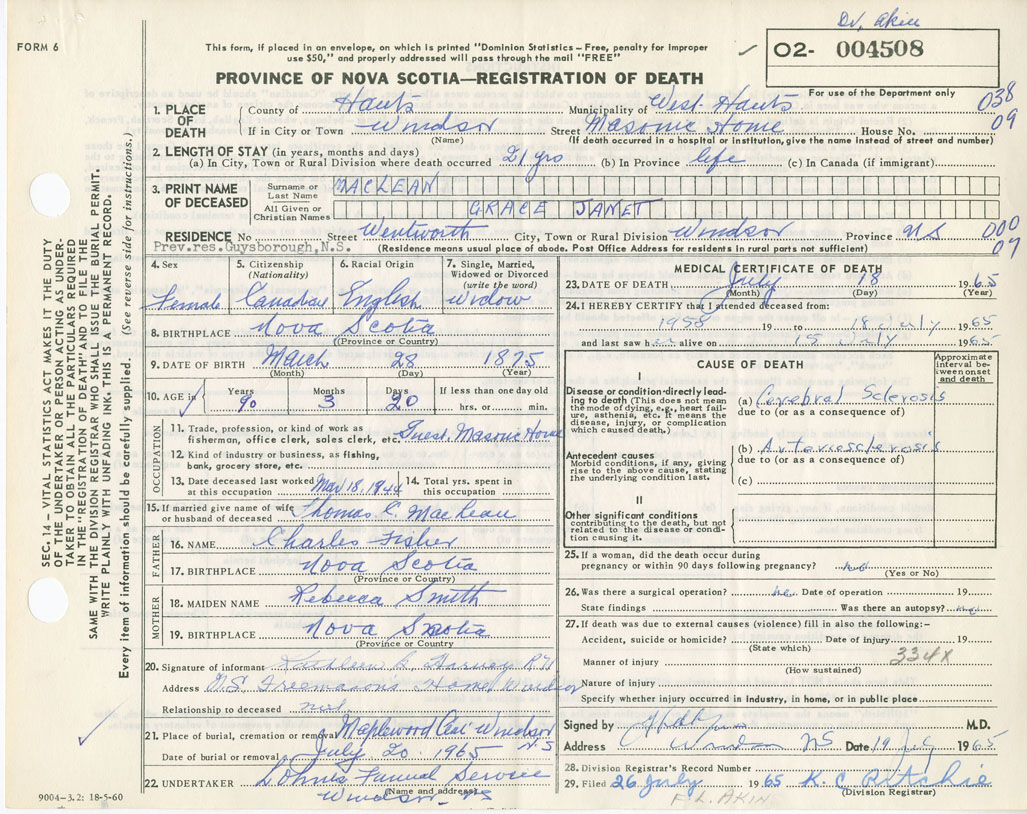 Dr. Akin
FORM 6
This form, if placed in an envelope, on which is printed "Dominion Statistics – Free, penalty for improper
use $50," and properly addressed will pass through the mail "FREE"
✓ 02- 004508
PROVINCE OF NOVA SCOTIA—REGISTRATION OF DEATH
For use of the Department only
1. PLACE OF DEATH
County of Hants Municipality of West Hants 038
If in City or Town Windsor Street Masonic Home House No. 09
(Name) (If death occurred in a hospital or institution, give name instead of street and number)
2. LENGTH OF STAY (in years, months and days)
(a) In City, Town or Rural Division where death occurred 21 yrs (b) In Province life (c) In Canada (if immigrant)
3. PRINT NAME OF DECEASED
Surname or Last Name MACLEAN
All Given or Christian Names GRACE JANET
RESIDENCE No. Street Wentworth City, Town or Rural Division Windsor Province N S 000
Prev.res.Guysborough,N.S. (Residence means usual place of abode. Post Office Address for residents in rural parts not sufficient) 07
4. Sex Female
5. Citizenship (Nationality) Canadian
6. Racial Origin English
7. Single, Married, Widowed or Divorced (write the word) Widow
8. BIRTHPLACE Nova Scotia
(Province or Country)
9. DATE OF BIRTH March 28 1875
(Month) (Day) (Year)
10. AGE in ✓ Years 90 Months 3 Days 20 If less than one day old hrs. or min.
OCCUPATION
11. Trade, profession, or kind of work as fisherman, office clerk, sales clerk, etc. Guest Masonic Home
12. Kind of industry or business, as fishing, bank, grocery store, etc.
13. Date deceased last worked at this occupation Mar 18. 1944
14. Total yrs. spent in this occupation
15. If married give name of wife or husband of deceased Thomas C. MacLean
FATHER
16. NAME Charles Fisher
17. BIRTHPLACE Nova Scotia
(Province or Country)
MOTHER
18. MAIDEN NAME Rebecca Smith
19. BIRTHPLACE Nova Scotia
(Province or Country)
20. Signature of informant Kathleen
Address N.S. Freemason's Home Windsor
Relationship to deceased
21. Place of burial, cremation or removal Maplewood Cem Windsor N.S
Date of burial or removal July 20. 1965
22. UNDERTAKER Funeral Service
Windsor NS (Name and address)
9004–3.2: 18-5-60
MEDICAL CERTIFICATE OF DEATH
23. DATE OF DEATH July 18 1965
(Month) (Day) (Year)
24. I HEREBY CERTIFY that I attended deceased from:
1958 19 to 18 July 1965
and last saw her alive on 15 July 1965
CAUSE OF DEATH
Approximate interval between onset and death
I
Disease or condition directly leading to death (This does not mean the mode of dying, e.g., heart failure, asthenia, etc. It means the disease, injury, or complication which caused death.)
(a) Cerebral Sclerosis
due to (or as a consequence of)
Antecedent causes
Morbid conditions, if any, giving rise to the above cause, stating the underlying condition last.
(b) Arteriosclerosis
due to (or as a consequence of)
(c)
II
Other significant conditions
contributing to the death, but not related to the disease or condition causing it.
25. If a woman, did the death occur during
pregnancy or within 90 days following pregnancy? no
(Yes or No)
26. Was there a surgical operation? no Date of operation 19
State findings Was there an autopsy? no
27. If death was due to external causes (violence) fill in also the following:–
Accident, suicide or homicide? Date of injury 19
(State which)
334X
Manner of injury
(How sustained)
Nature of injury
Specify whether injury occurred in industry, in home, or in public place
Signed by M.D.
Address Windsor NS Date 19 July 1965
28. Division Registrar's Record Number
29. Filed 26 July 1965 K. C. Ritchie
F.L. AKIN (Division Registrar)
SEC. 14 – VITAL STATISTICS ACT MAKES IT THE DUTY
OF THE UNDERTAKER OR PERSON ACTING AS UNDER-
TAKER TO OBTAIN ALL THE PARTICULARS REQUIRED
IN THE "REGISTRATION OF DEATH" AND TO FILE THE
SAME WITH THE DIVISION REGISTRAR WHO SHALL ISSUE THE BURIAL PERMIT.
WRITE PLAINLY WITH UNFADING INK. THIS IS A PERMANENT RECORD.
Every item of information should be carefully supplied. (See reverse side for instructions.)